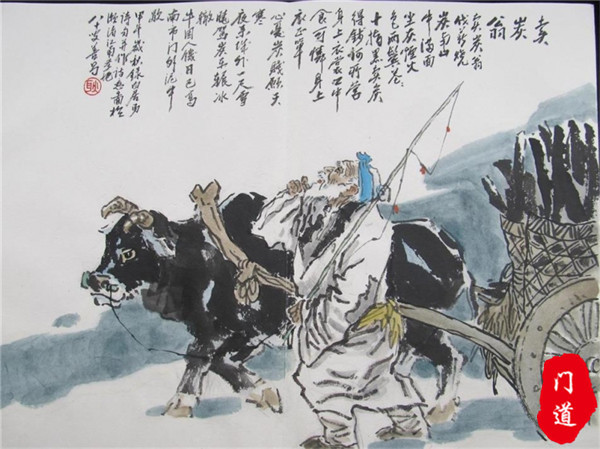 卖
炭
翁
卖炭翁
伐薪烧
炭南山
中满面
尘灰烟火
色两鬓苍
十指黑卖炭
得钱何所营
身上衣裳口中
食可怜身上
衣正单
心忧炭贱愿天
寒
夜来城外一尺雪
晓驾炭车辗冰
辙
牛困人饥日已高
南市门外泥中
歇
甲午秋录白居易
诗句并作诗意画于
门道